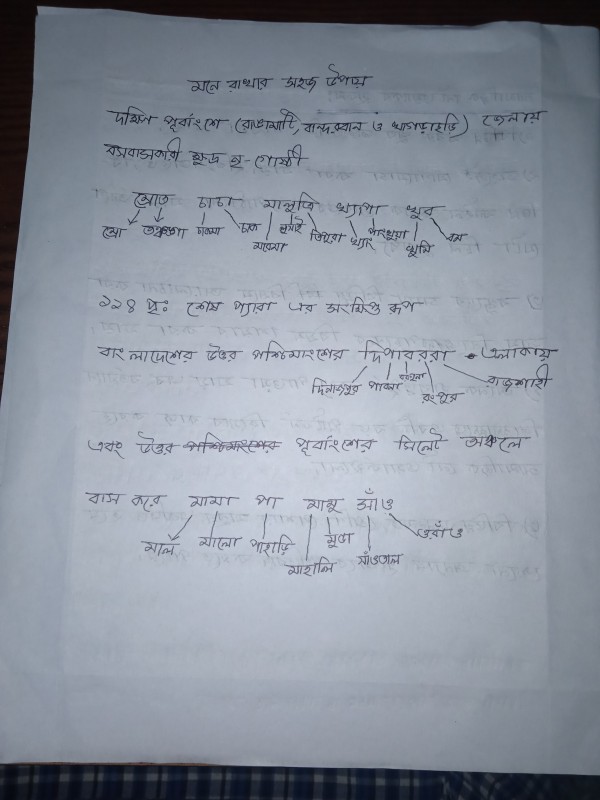 মনে রাখার সহজ উপায়
দক্ষিণ পূর্বাংশে (রাঙামাটি, বান্দরবান ও খাগড়াছড়ি) জেলায়
বসবাসকারী ক্ষুদ্র নৃ-গোষ্ঠী
ম্রোত চাচা মালুত্রি খ্যাপা খুব
ম্রো তঞ্চঙ্গা চাকমা চাক মারমা লুসাই ত্রিপুরা খ্যাং পাংখুয়া খুমি বম
১২৪ পৃঃ শেষ প্যারা এর সংক্ষিপ্ত রূপ
বাংলাদেশের উত্তর পশ্চিমাংশের দিপাবররা এলাকায়
দিনাজপুর পাবনা বগুড়া রংপুর রাজশাহী
এবং উত্তর পশ্চিমাংশের পূর্বাংশের সিলেট অঞ্চলে
বাস করে মামা পা মামু সাঁও
মাল মালো পাহাড়ি মাহালি মুন্ডা সাঁওতাল ওরাঁও